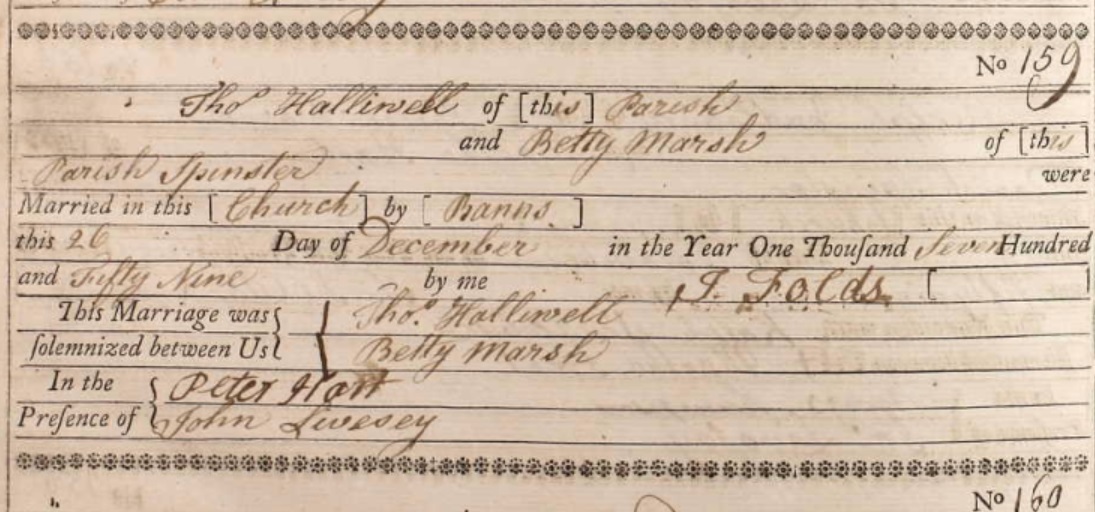 No 159
Thoˢ Halliwell of [this] Parish
and Betty Marsh of [this]
Parish Spinster were
Married in this [Church] by [Banns]
this 26 Day of December in the Year One Thouſand Seven Hundred
and Fifty Nine by me J. Folds [ ]
This Marriage was { { Thoˢ. Halliwell
ſolemnized between Us { Betty Marsh
In the { Peter Hart
Preſence of { John Livesey
No 160